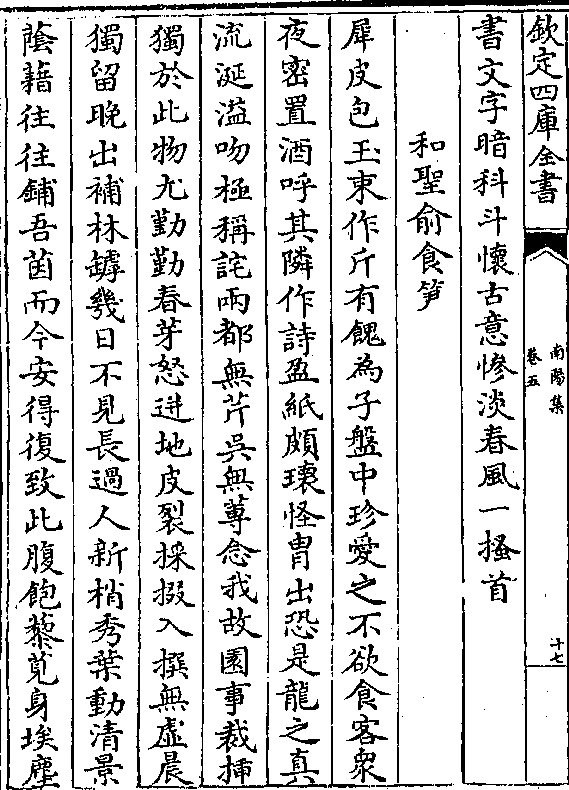 欽定四庫全書
南陽集
卷五
十七
書文字暗科斗懷古意慘淡春風一搔首
和聖俞食笋
犀皮包玉束作斤有餽為子盤中珍愛之不欲食客衆
夜密置酒呼其隣作詩盈紙頗瓌怪胄出恐是龍之真
流涎溢吻極稱詫兩都無芹吳無蓴念我故園事裁揷
獨於此物尤勤勤春芽怒迸地皮裂採掇入撰無虛晨
獨留晚出補林罅幾日不見長過人新梢秀葉動清景
蔭藉往往鋪吾茵而今安得復致此腹飽藜莧身埃塵